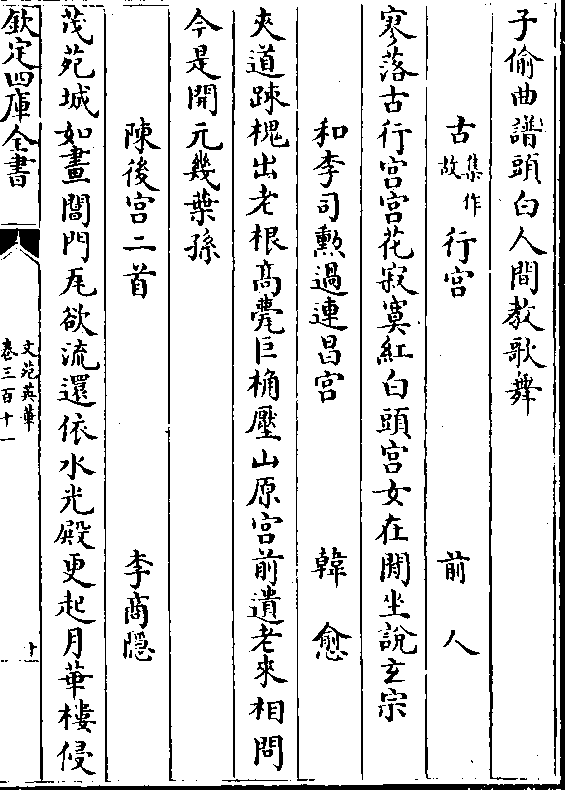 子偷曲譜頭白人間教歌舞
古集作故行宫 前人
寥落古行宫宫花寂寞紅白頭宫女在閒坐說玄宗
和李司勲過連昌宫 韓愈
夾道疎槐出老根髙甍巨桷壓山原宫前遺老來相問
今是開元幾葉孫
陳後宫二首 李商隠
茂苑城如畫閶門瓦欲流還依水光殿更起月華樓侵
欽定四庫全書
文苑英華
卷三百十一
十